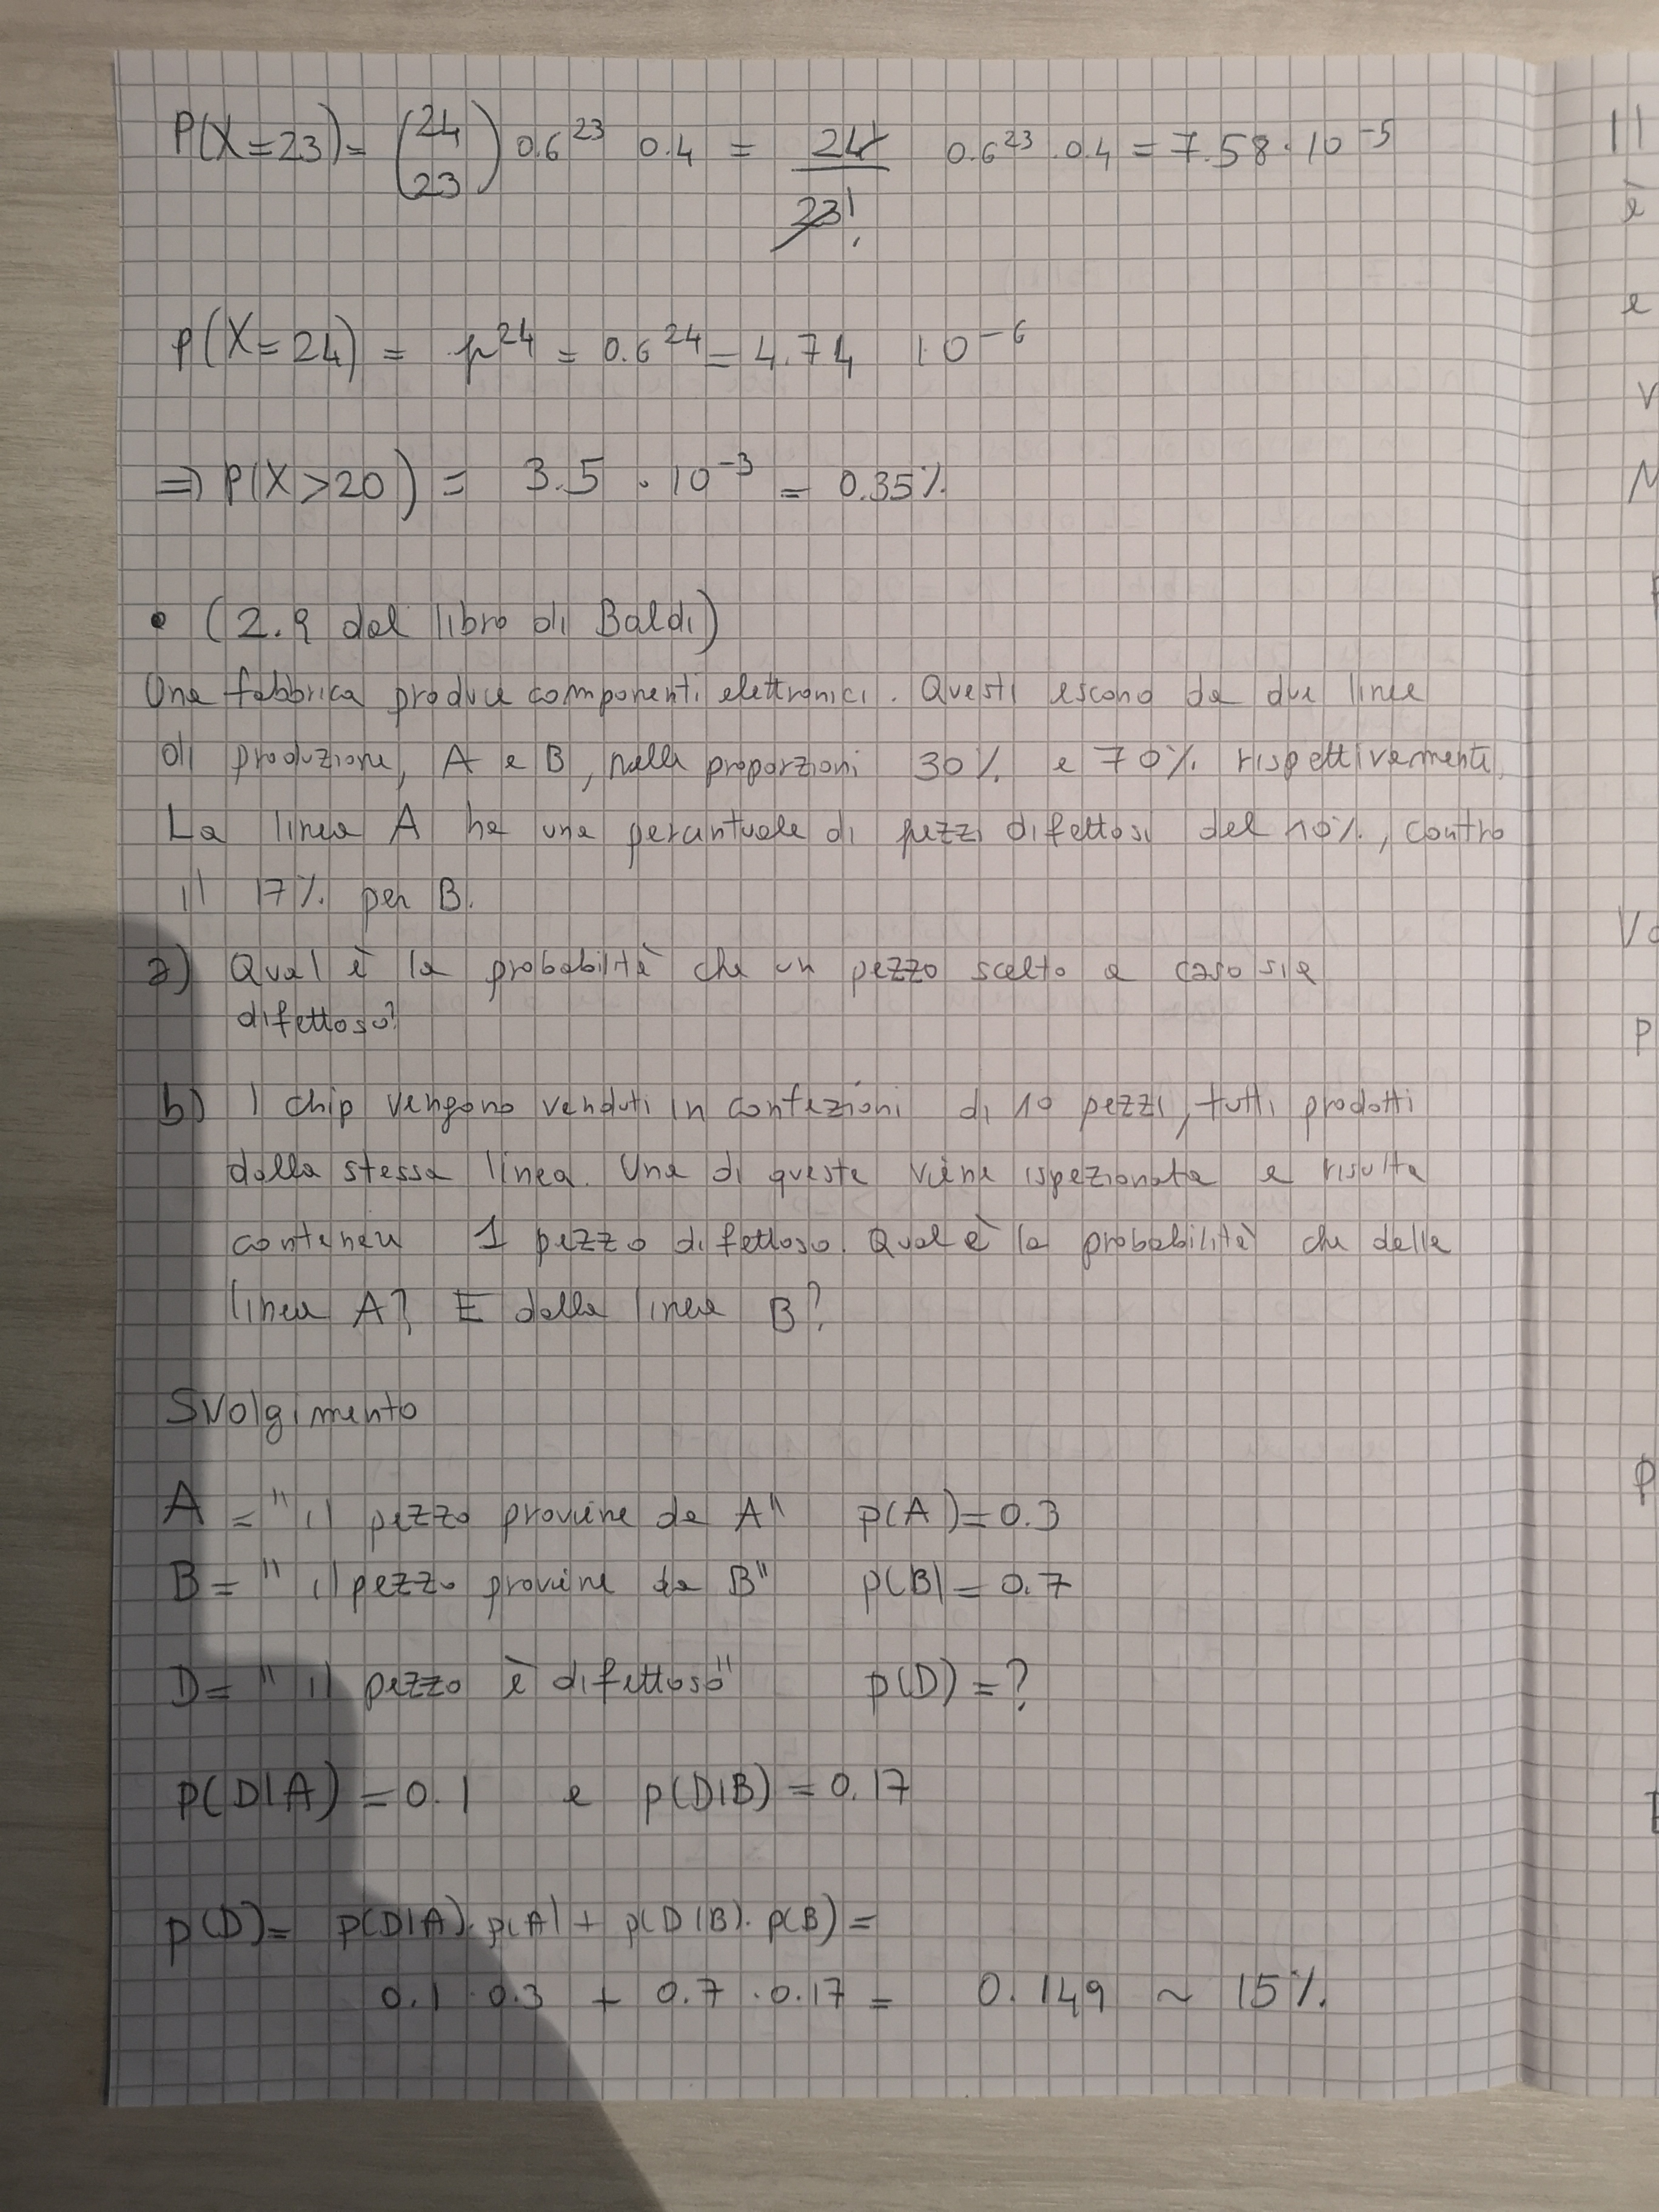 P(X=23)= (24 23) 0.6^23 0.4 = 24/23! 0.6^23 · 0.4 = 7.58 · 10^-5
P(X=24) = p^24 = 0.6^24 = 4.74 10^-6
⇒ P(X>20) = 3.5 · 10^-3 = 0.35%
• (2.9 dal libro di Baldi)
Una fabbrica produce componenti elettronici. Questi escono da due linee
di produzione, A e B, nelle proporzioni 30% e 70% rispettivamente.
La linea A ha una percentuale di pezzi difettosi del 10%, contro
il 17% per B.
a) Qual è la probabilità che un pezzo scelto a caso sia
difettoso?
b) I chip vengono venduti in confezioni di 10 pezzi, tutti prodotti
dalla stessa linea. Una di queste viene ispezionata e risulta
contenere 1 pezzo difettoso. Qual è la probabilità che dalla
linea A? E dalla linea B?
Svolgimento
A = "il pezzo proviene da A" p(A)=0.3
B = "il pezzo proviene da B" p(B)=0.7
D = "il pezzo è difettoso" p(D)=?
p(D|A) = 0.1 e p(D|B) = 0.17
p(D)= p(D|A)·p(A) + p(D|B)·p(B) =
0.1 · 0.3 + 0.7 · 0.17 = 0.149 ~ 15%